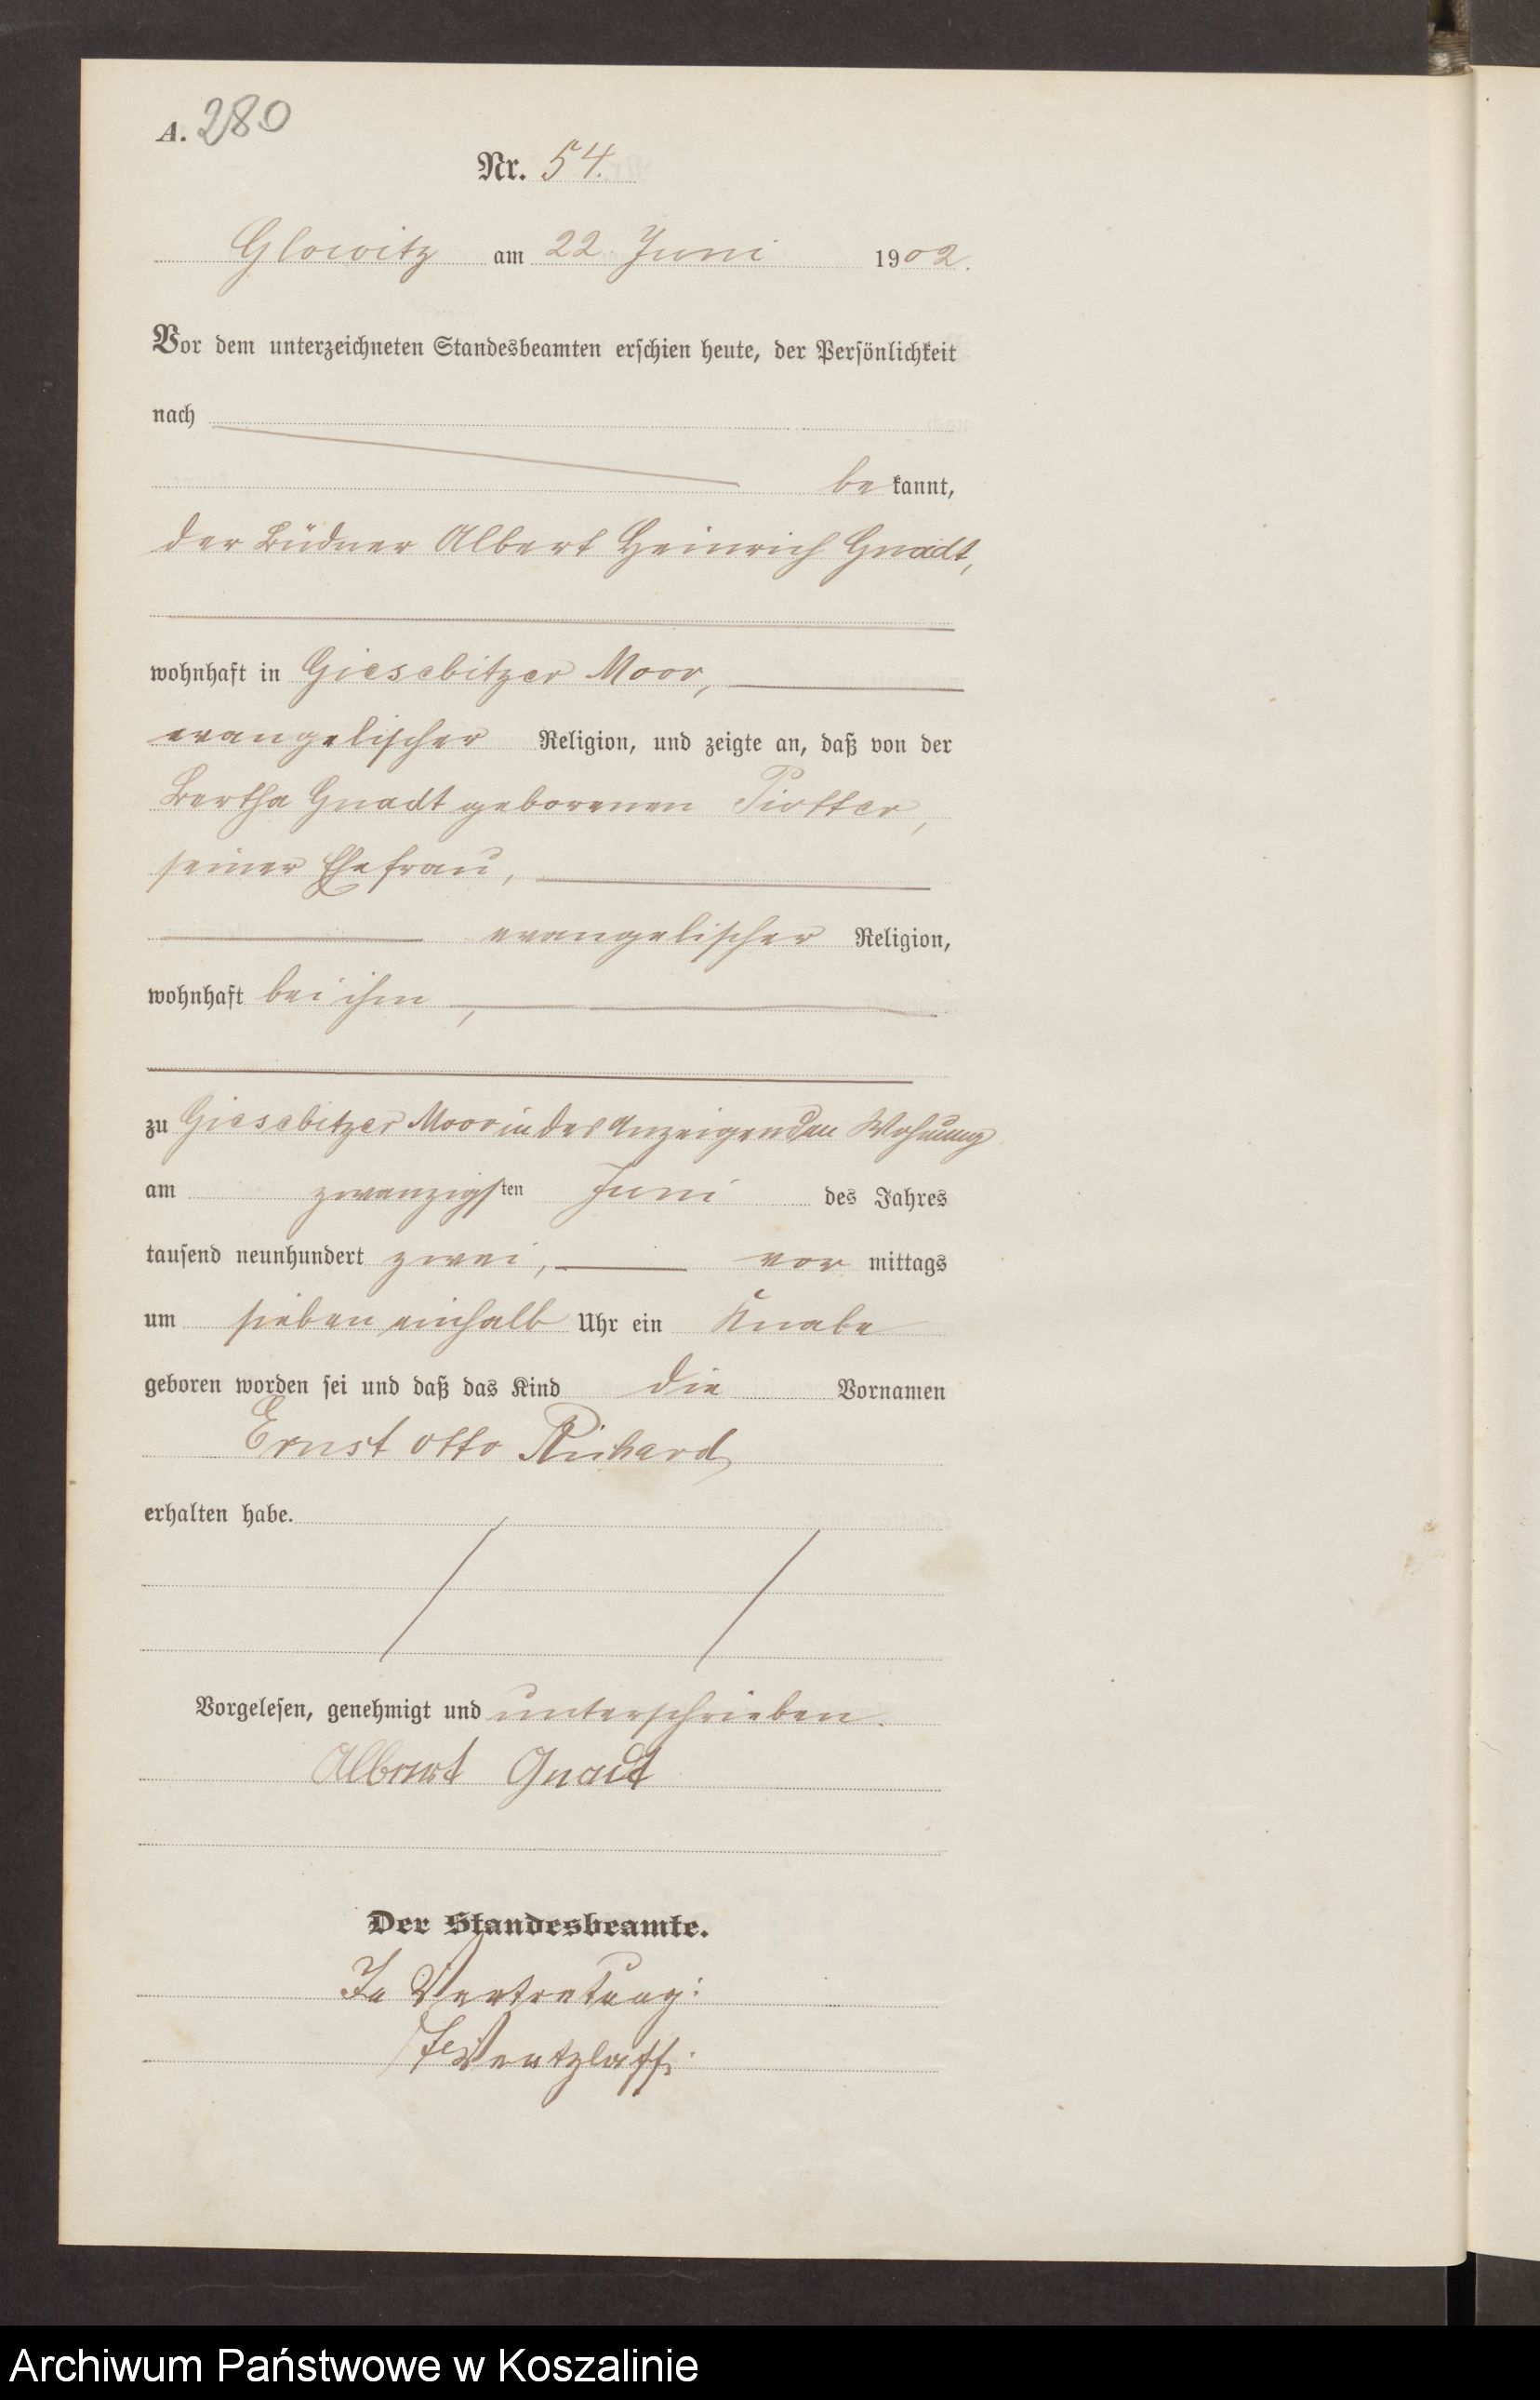 A. 280
Nr. 54.
Glowitz am 22 Juni 1902.
Vor dem unterzeichneten Standesbeamten erschien heute, der Persönlichkeit
nach
bekannt,
der Büdner Albert Heinrich Gnadt,
wohnhaft in Giesebitzer Moor,
evangelischer Religion, und zeigte an, daß von der
Bertha Gnadt geborenen Piotter,
seiner Ehefrau,
evangelischer Religion,
wohnhaft bei ihm,
zu Giesebitzer Moor in des Anzeigenden Wohnung
am zwanzigsten Juni des Jahres
tausend neunhundert zwei, vor mittags
um sieben einhalb Uhr ein Knabe
geboren worden sei und daß das Kind die Vornamen
Ernst Otto Richard
erhalten habe.
Vorgelesen, genehmigt und unterschrieben.
Albert Gnadt
Der Standesbeamte.
In Vertretung:
Wentzlaff.
Archiwum Państwowe w Koszalinie